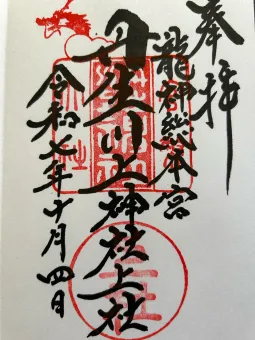 奉拝
龍神総本宮
丹生川上神社上社
令和七年十月四日